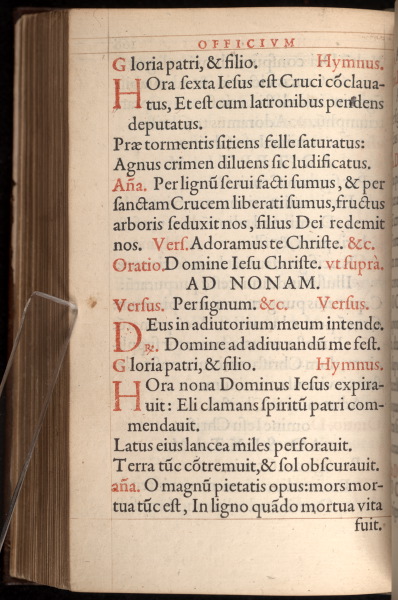 OFFICIVM
Gloria patri, & filio. Hymnus.
HOra sexta Iesus est Cruci cõclaua-
tus, Et est cum latronibus pendens
deputatus.
Præ tormentis sitiens felle saturatus:
Agnus crimen diluens sic ludificatus.
Aña. Per lignũ serui facti sumus, & per
sanctam Crucem liberati sumus, fructus
arboris seduxit nos, filius Dei redemit
nos. Vers. Adoramus te Christe. &c.
Oratio. Domine Iesu Christe. vt suprà.
AD NONAM.
Versus. Per signum. &c. Versus.
DEus in adiutorium meum intende.
℞. Domine ad adiuuandũ me fest.
Gloria patri, & filio. Hymnus.
HOra nona Dominus Iesus expira-
uit: Eli clamans spiritũ patri com-
mendauit.
Latus eius lancea miles perforauit.
Terra tũc cõtremuit, & sol obscurauit.
aña. O magnũ pietatis opus: mors mor-
tua tũc est, In ligno quãdo mortua vita
fuit.